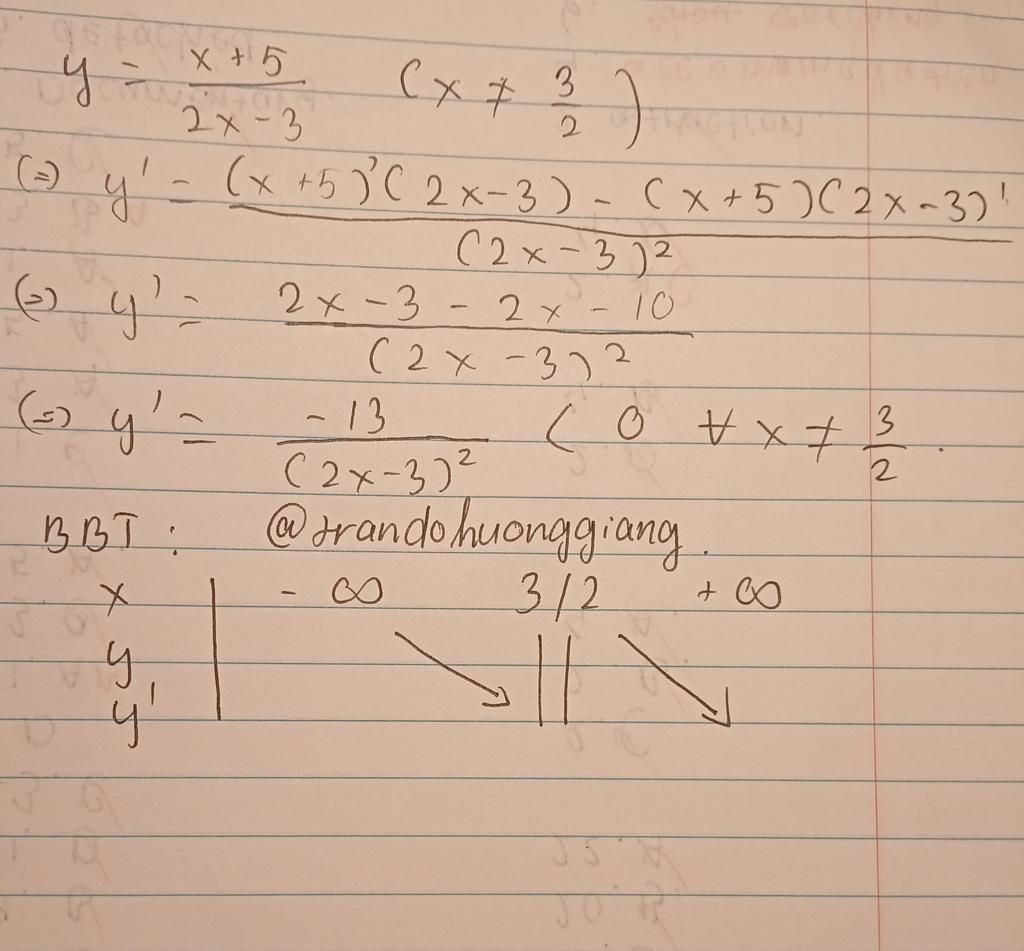 y = x + 5 / 2x - 3 (x ≠ 3/2)
(=) y' = (x + 5)'(2x - 3) - (x + 5)(2x - 3)' / (2x - 3)²
(=) y' = 2x - 3 - 2x - 10 / (2x - 3)²
(=) y' = -13 / (2x - 3)² < 0 ∀ x ≠ 3/2.
BBT: @trandohuonggiang.
x | -∞ 3/2 +∞
y | ↘ || ↘
y' |